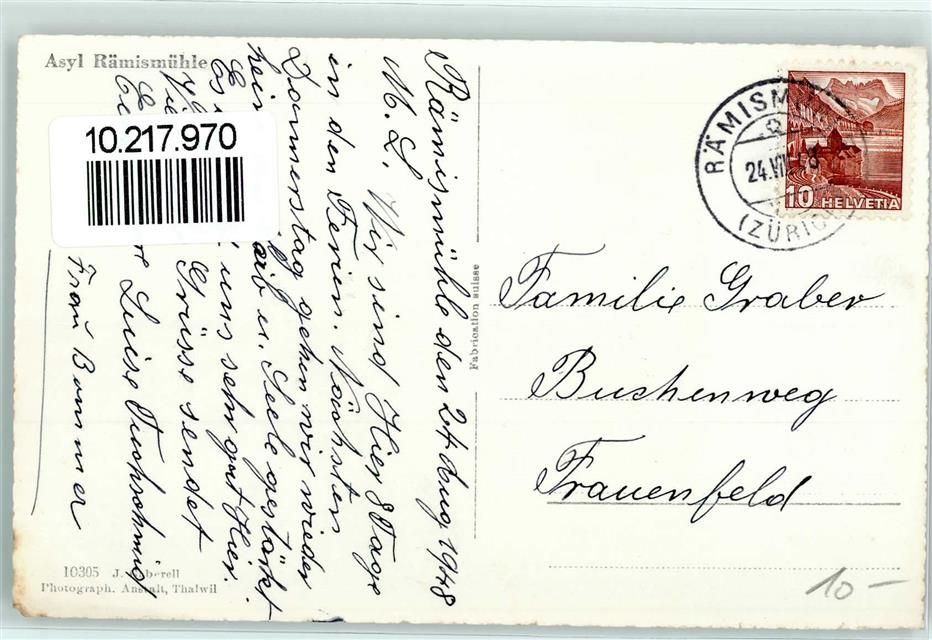 Asyl Rämismühle
10.217.970
Rämismühle den 24 Aug 1948
M. L. Wir sind Hier 8 Tage
in den Ferien. Nächsten
Donnerstag gehen wir wieder
heim Leib u. Seele gestärkt
uns sehr gut Hier.
Grüsse sendet
Luise Tuchschmid
Frau Bommer
10305 J.
Photograph. Anstalt, Thalwil
Fabrication suisse
RÄMISMÜHLE
24.VIII.48
(ZÜRICH)
10 HELVETIA
Familie Graber
Buchenweg
Frauenfeld
10-